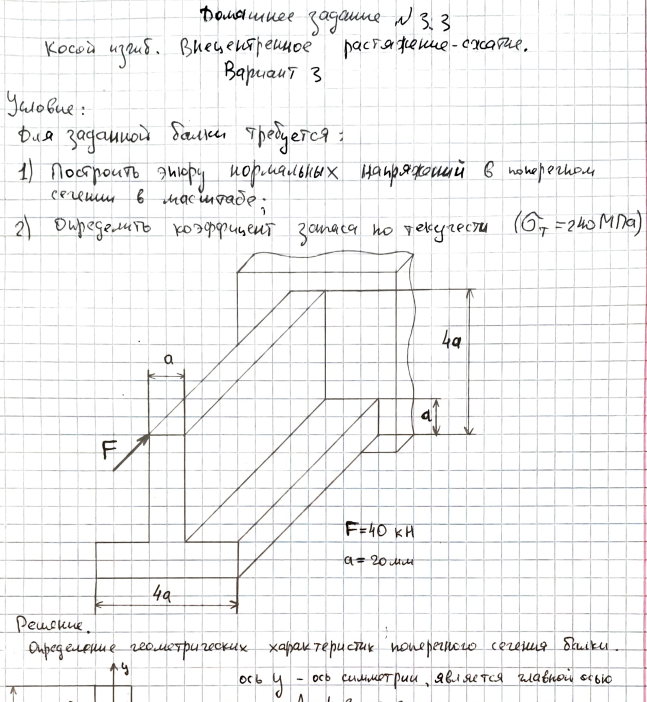 Домашнее задание №3.3
Косой изгиб. Внецентренное растяжение-сжатие.
Вариант 3
Условие:
Для заданной балки требуется:
1) Построить эпюру нормальных напряжений в поперечном
сечении в масштабе;
2) Определить коэффицент запаса по текучести (σт = 240 МПа)
4a
a
a
F
F=40 кН
a=20 мм
4a
Решение.
Определение геометрических характеристик поперечного сечения балки.
y
ось y - ось симметрии, является главной осью